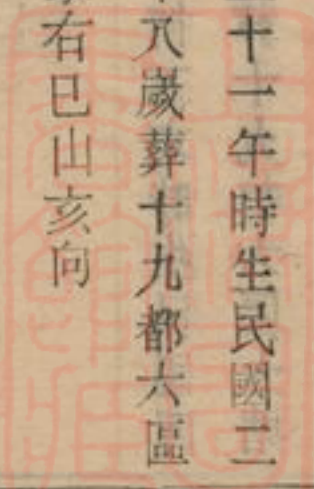 十一午時生民國二
八歲葬十九都六區
右巳山亥向